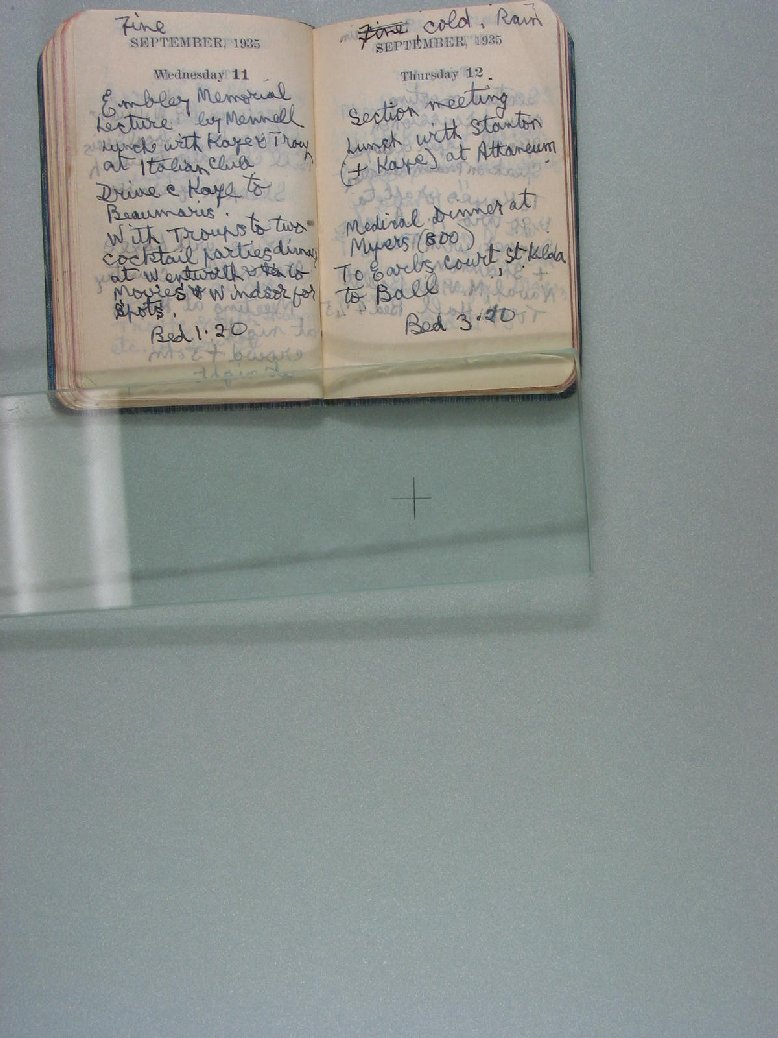 Fine
SEPTEMBER, 1935
Wednesday 11
Embley Memorial
Lecture by Mennell
Lunch with Kaye & Troup
at Italian Club
Drive c Kaye to
Beaumaris.
With Troups to two
cocktail parties dinner
at Wentworth to
Movies & Windsor for
spots.
Bed 1.20
Fine, cold. Rain
SEPTEMBER, 1935
Thursday 12.
Section meeting
Lunch with Stanton
(+ Kaye) at Athaneum.
Medical Dinner at
Myers (800)
To Earls Court St Kilda
to Ball
Bed 3.20